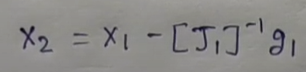 x₂ = x₁ - [J₁]⁻¹ g₁